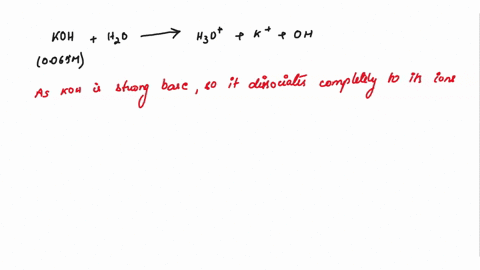 KOH + H₂O ⟶ H₃O⁺ + K⁺ + OH
(0.065M)
As KOH is strong base, so it dissociates completely to its ions